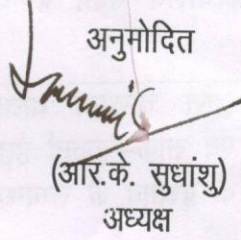 अनुमोदित
(आर.के. सुधांशु)
अध्यक्ष